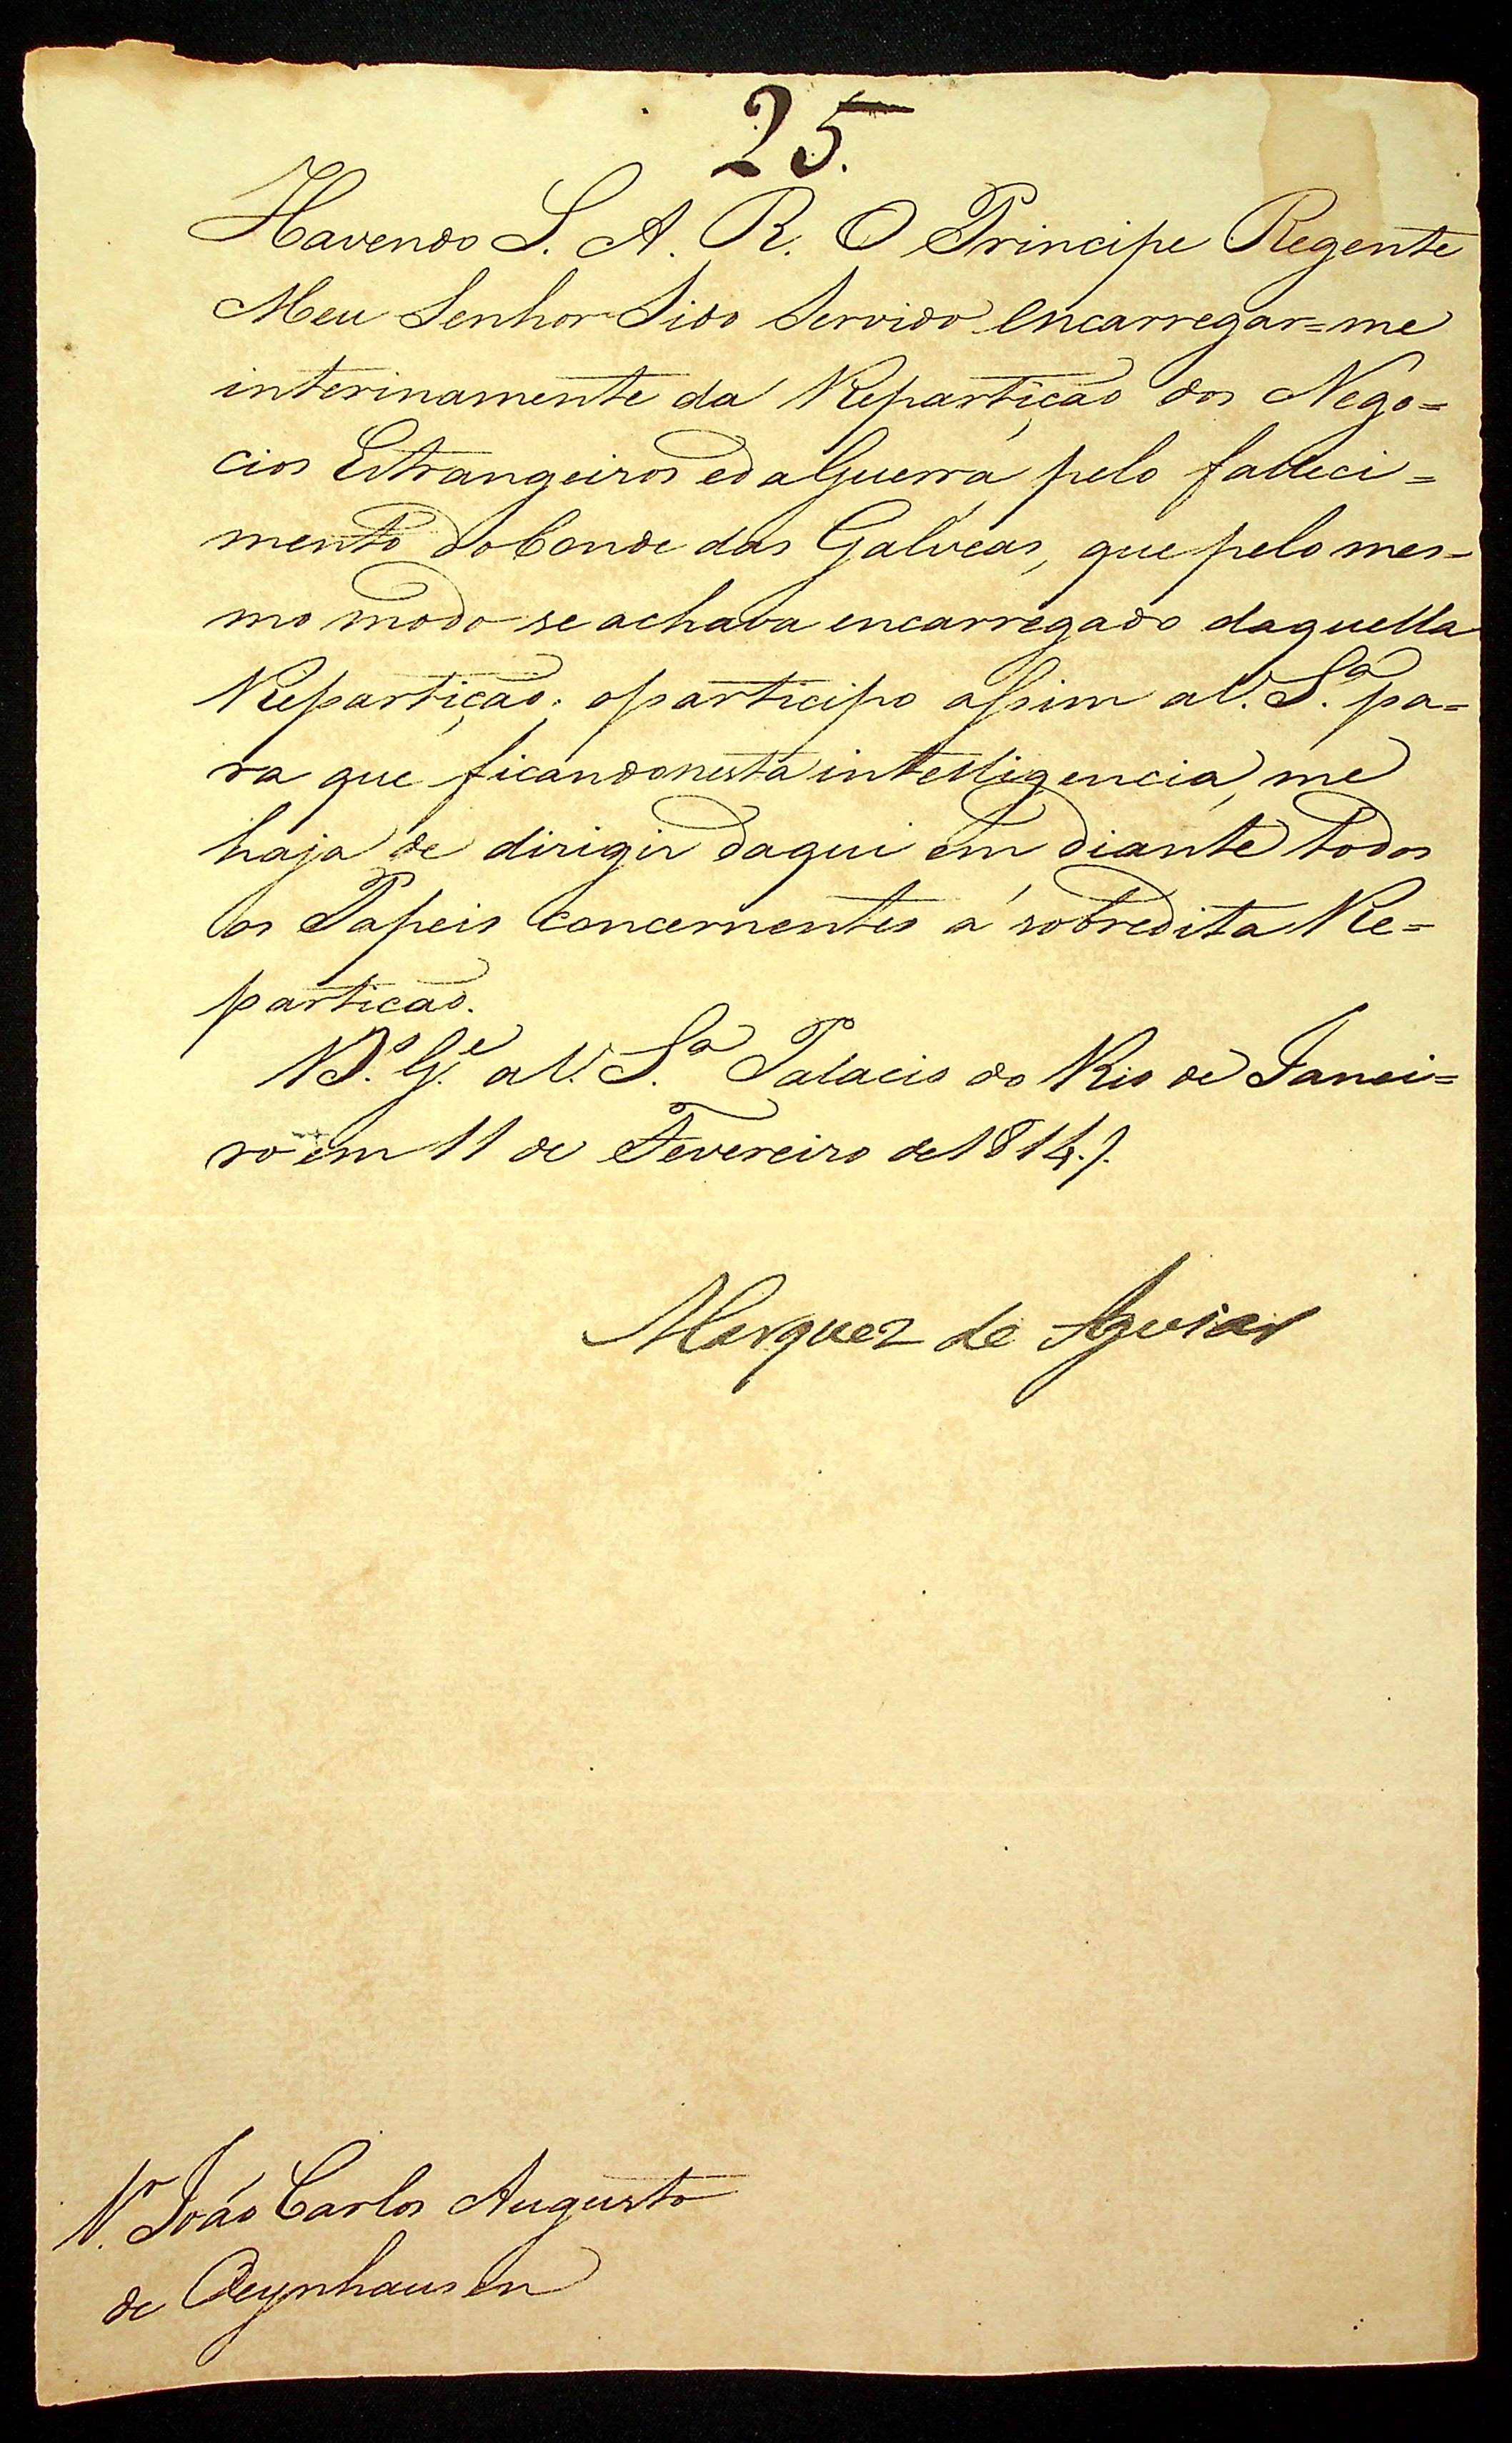 25.
Havendo S. A. R. O Principe Regente
Meu Senhor Sido Servido encarregar=me
interinamente da Repartição dos Nego=
cios Estrangeiros e da Guerra, pelo falleci=
mento do Conde das Galveas, que pelo mes=
mo modo se achava encarregado daquella
Repartição; o participo assim a V. S.ª pa=
ra que ficando nesta intelligencia, me
haja de dirigir daqui em diante todos
os Papeis concernentes á sobredita Re=
partição.
D.s G.e a V. S.ª Palacio do Rio de Janei=
ro em 11 de Fevereiro de 1814.
Marquez de Aguiar
João Carlos Augusto
de Oeynhausen